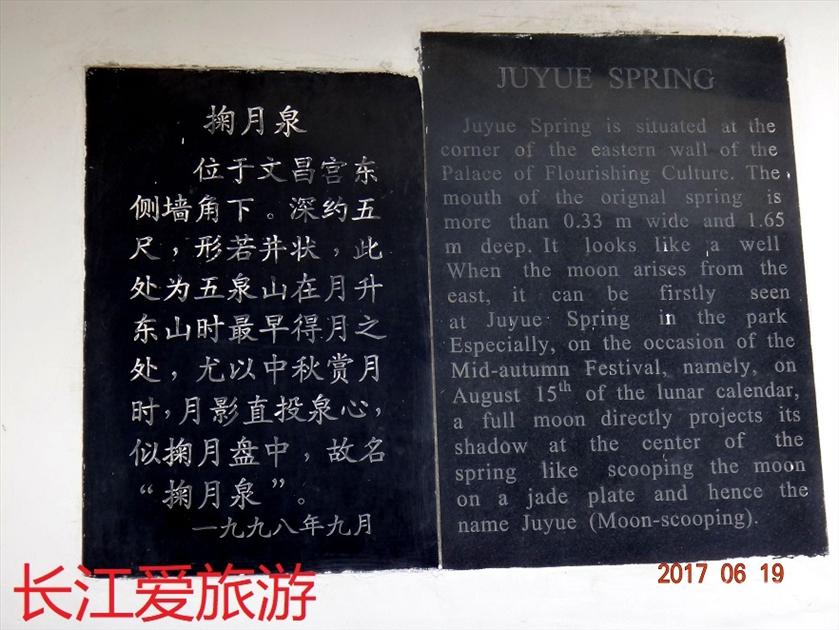 掬月泉
位于文昌宫东
侧墙角下。深约五
尺，形若井状，此
处为五泉山在月升
东山时最早得月之
处，尤以中秋赏月
时，月影直投泉心，
似掬月盘中，故名
“掬月泉”。
一九九八年九月
JUYUE SPRING
Juyue Spring is situated at the
corner of the eastern wall of the
Palace of Flourishing Culture. The
mouth of the orignal spring is
more than 0.33 m wide and 1.65
m deep. It looks like a well
When the moon arises from the
east, it can be firstly seen
at Juyue Spring in the park
Especially, on the occasion of the
Mid-autumn Festival, namely, on
August 15th of the lunar calendar,
a full moon directly projects its
shadow at the center of the
spring like scooping the moon
on a jade plate and hence the
name Juyue (Moon-scooping).
2017 06 19
长江爱旅游